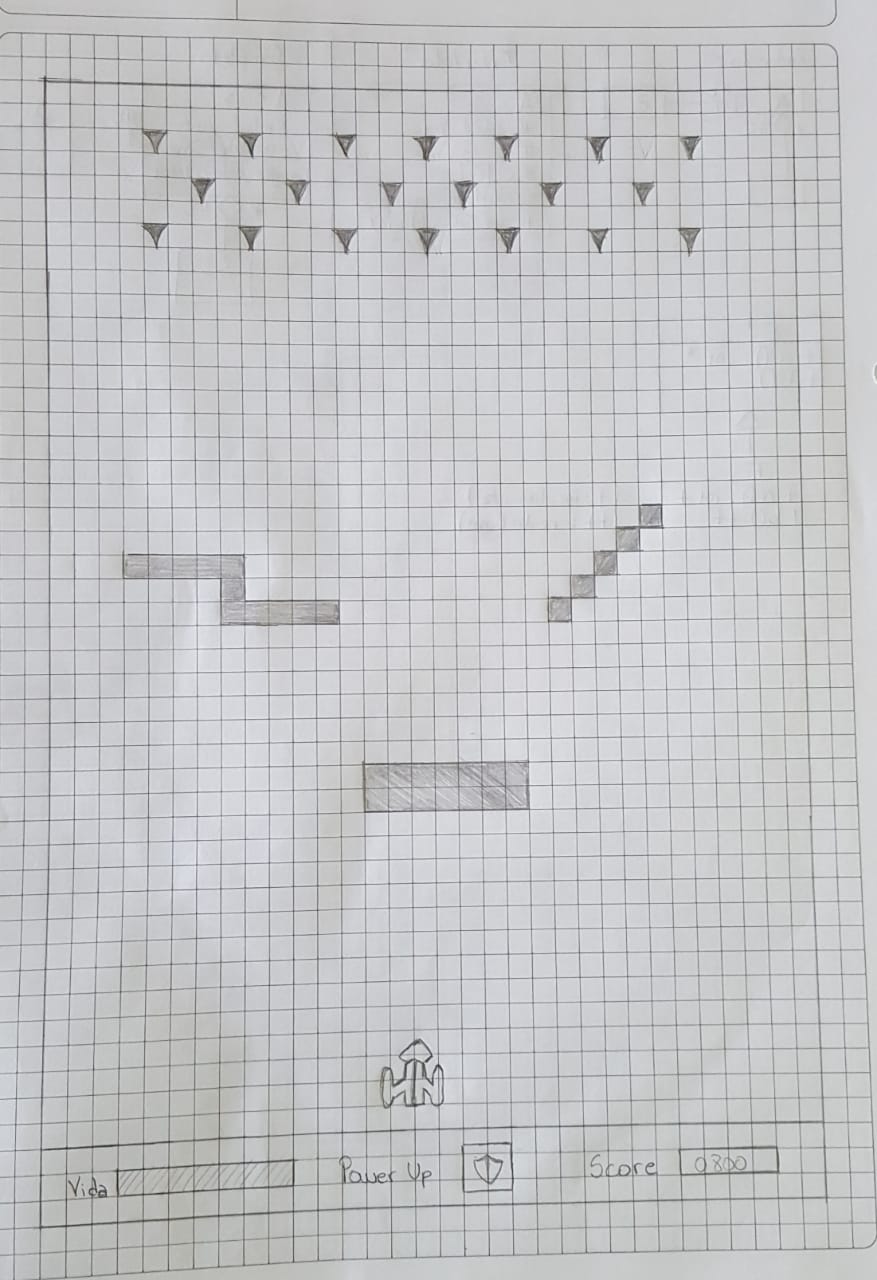 Vida Power Up Score 0800